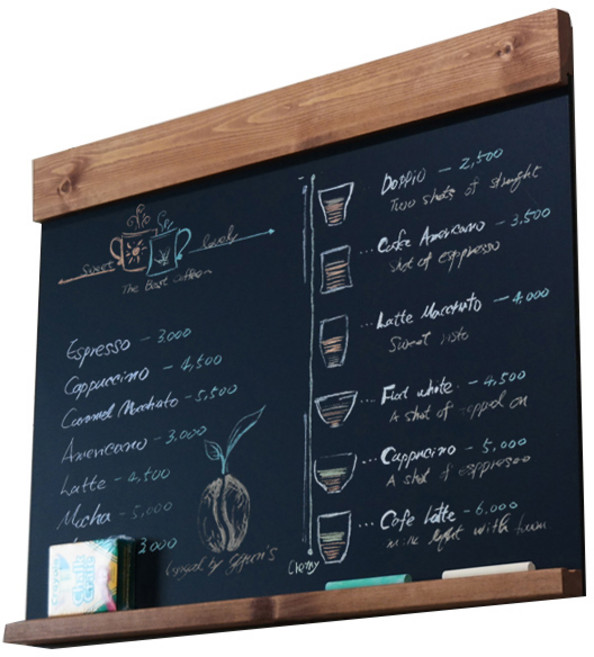 Sweet
lovely
The Best Coffee
Espresso - 3,000
Cappuccino - 4,500
Caramel Macchiato - 5,500
Americano - 3,000
Latte - 4,500
Mocha - 5,000
3,000
by
Doppio - 2,500
Two shots of straight
Cafe Americano - 3,500
shot of esppresso
Latte Macchiato - 4,000
Sweet
Flat white - 4,500
A shot of
Cappucino - 5,000
A shot of esppresso
Cafe latte - 6,000
milk light with